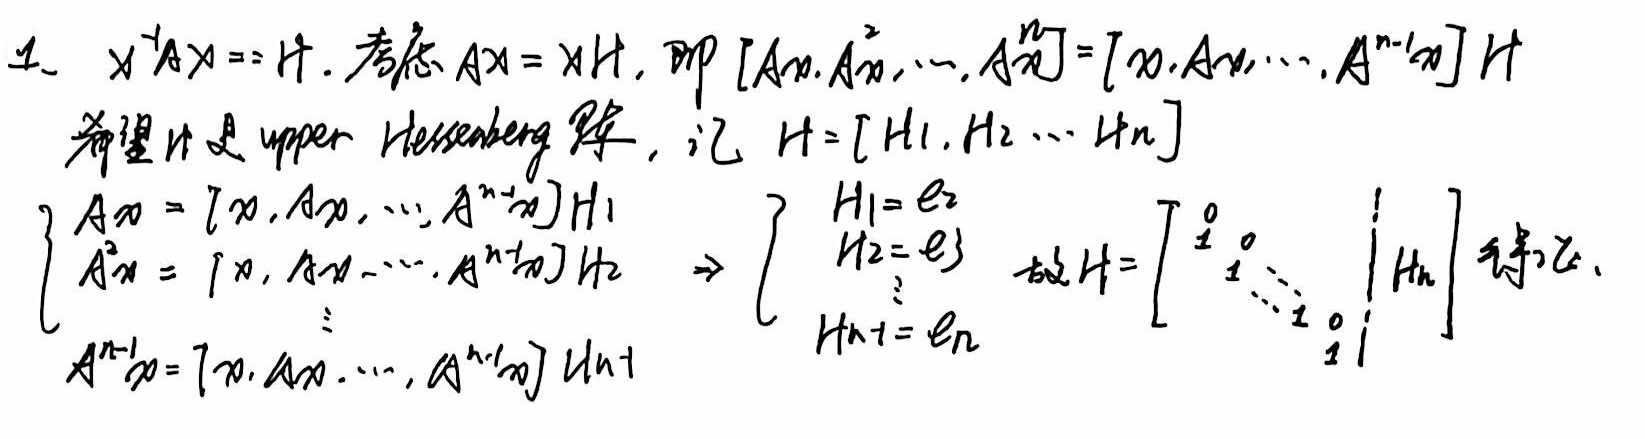 1. X⁻¹AX =: H. 考虑 AX = XH, 即 [Ax, A²x, ⋯, Aⁿx] = [x, Ax, ⋯, Aⁿ⁻¹x] H
希望 H 是 upper Hessenberg 阵, 记 H = [H1, H2 ⋯ Hn]
{ Ax = [x, Ax, ⋯, Aⁿ⁻¹x] H1
A²x = [x, Ax ⋯, Aⁿ⁻¹x] H2
⋮
Aⁿ⁻¹x = [x, Ax, ⋯, Aⁿ⁻¹x] Hn-1
⇒ { H1 = e2
H2 = e3
⋮
Hn-1 = en
故 H = [ 0
1 0
1 ⋱
⋱ 1 0
1 | Hn ] 得证.